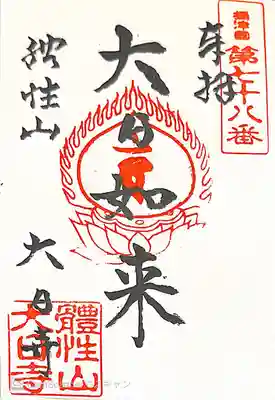 摂津国
第七十八番
奉拝
大日如来
体性山
大日寺
體性山
大日寺